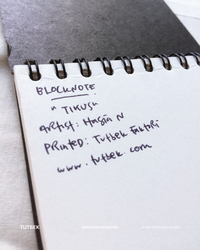 BLOCKNOTE
"TIKUS"
Artist: Hagia N
Printed: Tutbek Faktori
www.tutbek.com
TUTBEK